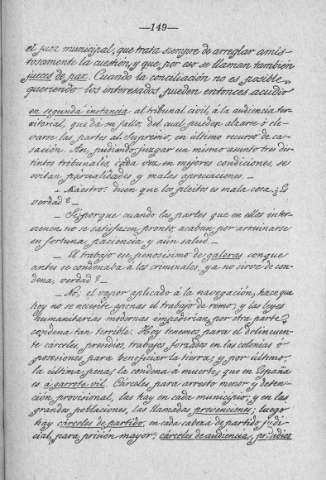 —149—
el juez municipal, que trata siempre de arreglar amis-
tosamente la cuestión y que por eso se llaman también
jueces de paz. Cuando la conciliación no es posible,
queriendo los interesados pueden entonces acudir
en segunda instancia al tribunal civil, á la audiencia terri-
torial, que dá su fallo del cual pueden alzarse ó ele-
varse las partes al Supremo, en último recurso de ca-
sación. Así, pudiendo juzgar un mismo asunto tres dis-
tintos tribunales, cada vez en mejores condiciones, se
evitan parcialidades y malas apreciaciones.—
— Maestro: dicen que los pleitos es mala cosa, ¿es
verdad?—
— Sí, porque cuando las partes que en ellos inter-
vienen no se satisfacen pronto, acaban por arruinarse
en fortuna, paciencia y aún salud.—
— El trabajo tan penosísimo de galeras conque
antes se condenaba á los criminales, ya no sirve de con-
dena, verdad?—
— No; el vapor aplicado á la navegación, hace que
hoy no se necesite apenas el trabajo de remar; y las leyes
humanitarias modernas impedirían por otra parte
condena tan terrible. Hoy tenemos para el delincuen-
te cárceles, presidios, trabajos forzados en las colonias ó
posesiones para beneficiar la tierra; y por último,
la última pena, la condena á muerte, que en España
es á garrote vil. Cárceles, para arresto menor y deten-
ción provisional, las hay en cada municipio; y en las
grandes poblaciones, las llamadas prevenciones; luego
hay cárceles de partido, en cada cabeza de partido judi-
cial, para prisión mayor; cárceles de audiencia; presidios